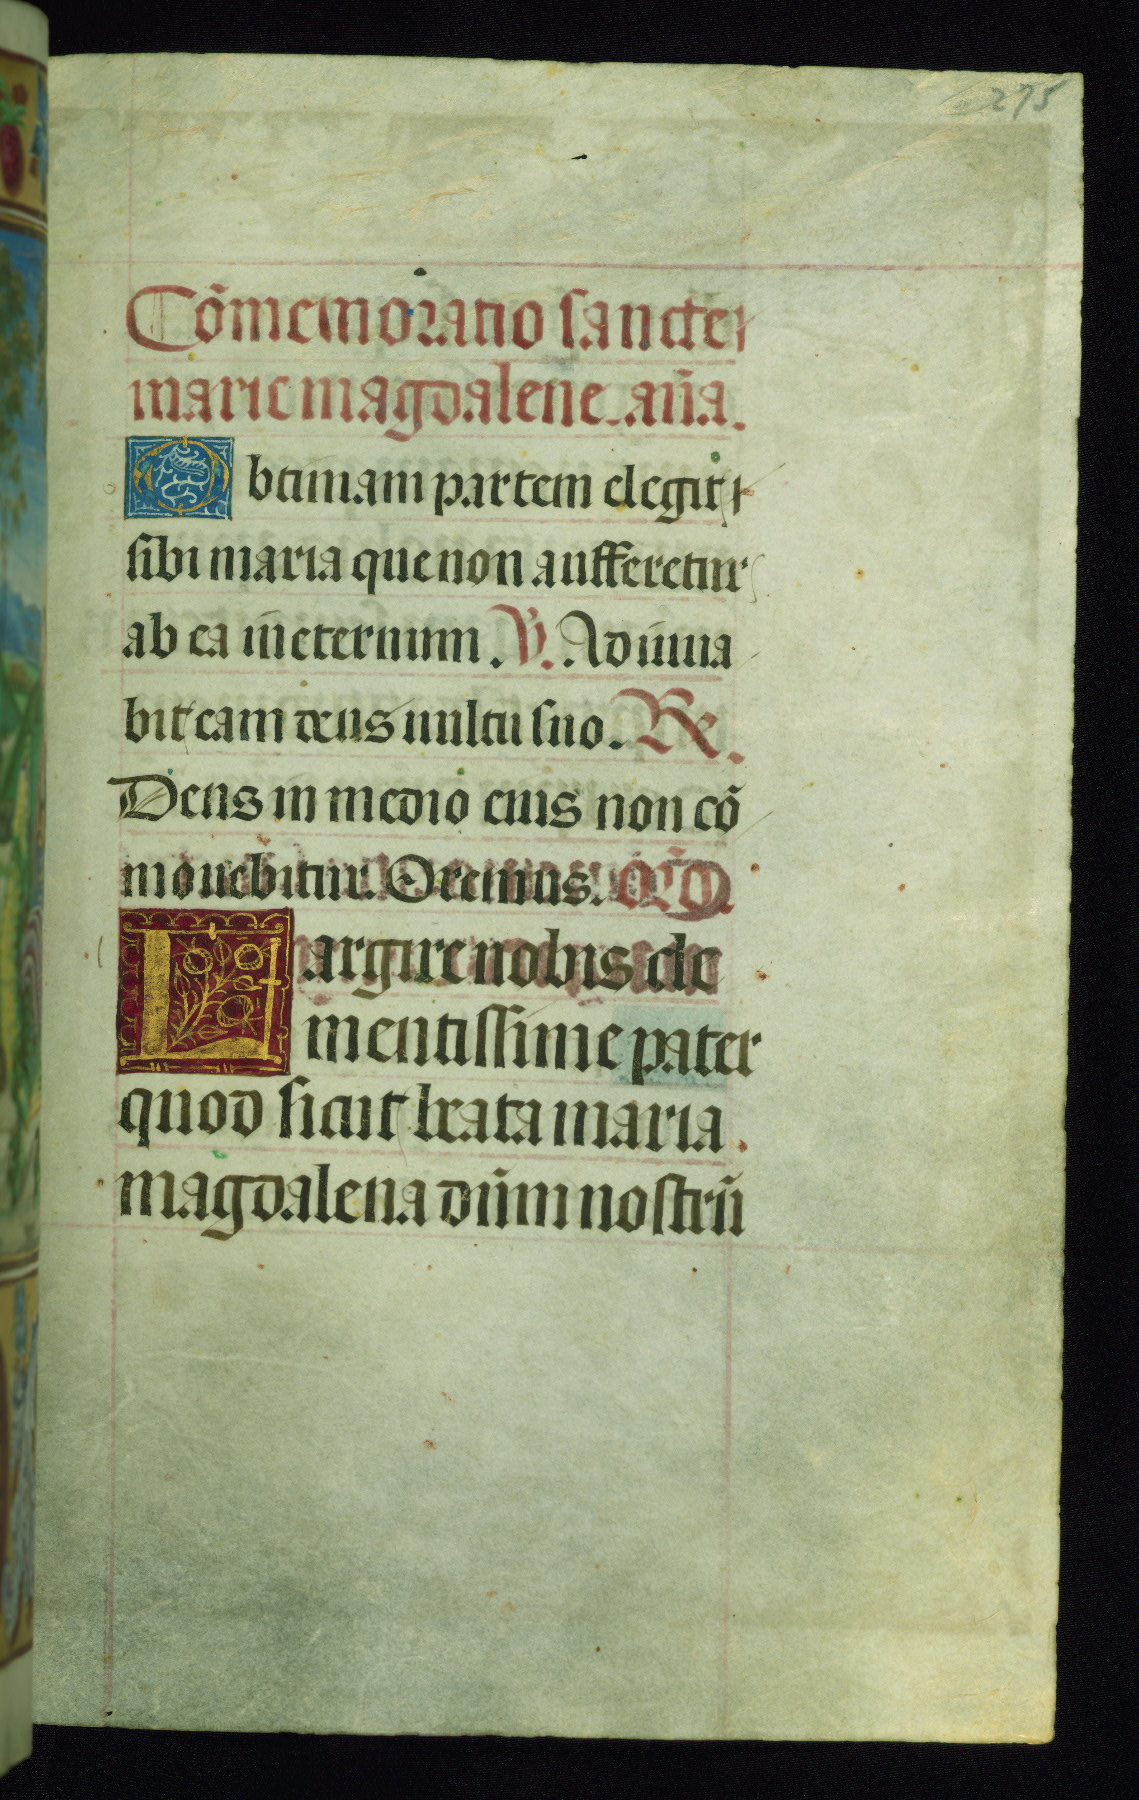 275
Cõmemoratio sancte
marie magdalene. añа.
Obtimam partem elegit
sibi maria que non aufferetur
ab ea in eternum. ℣. Adiuua
bit eam deus uultu suo. ℟.
Deus in medio eius non cõ
mouebitur. Oremus. Oro.
Largire nobis cle
mentissime pater
quod sicut beata maria
magdalena dñm nostrũ